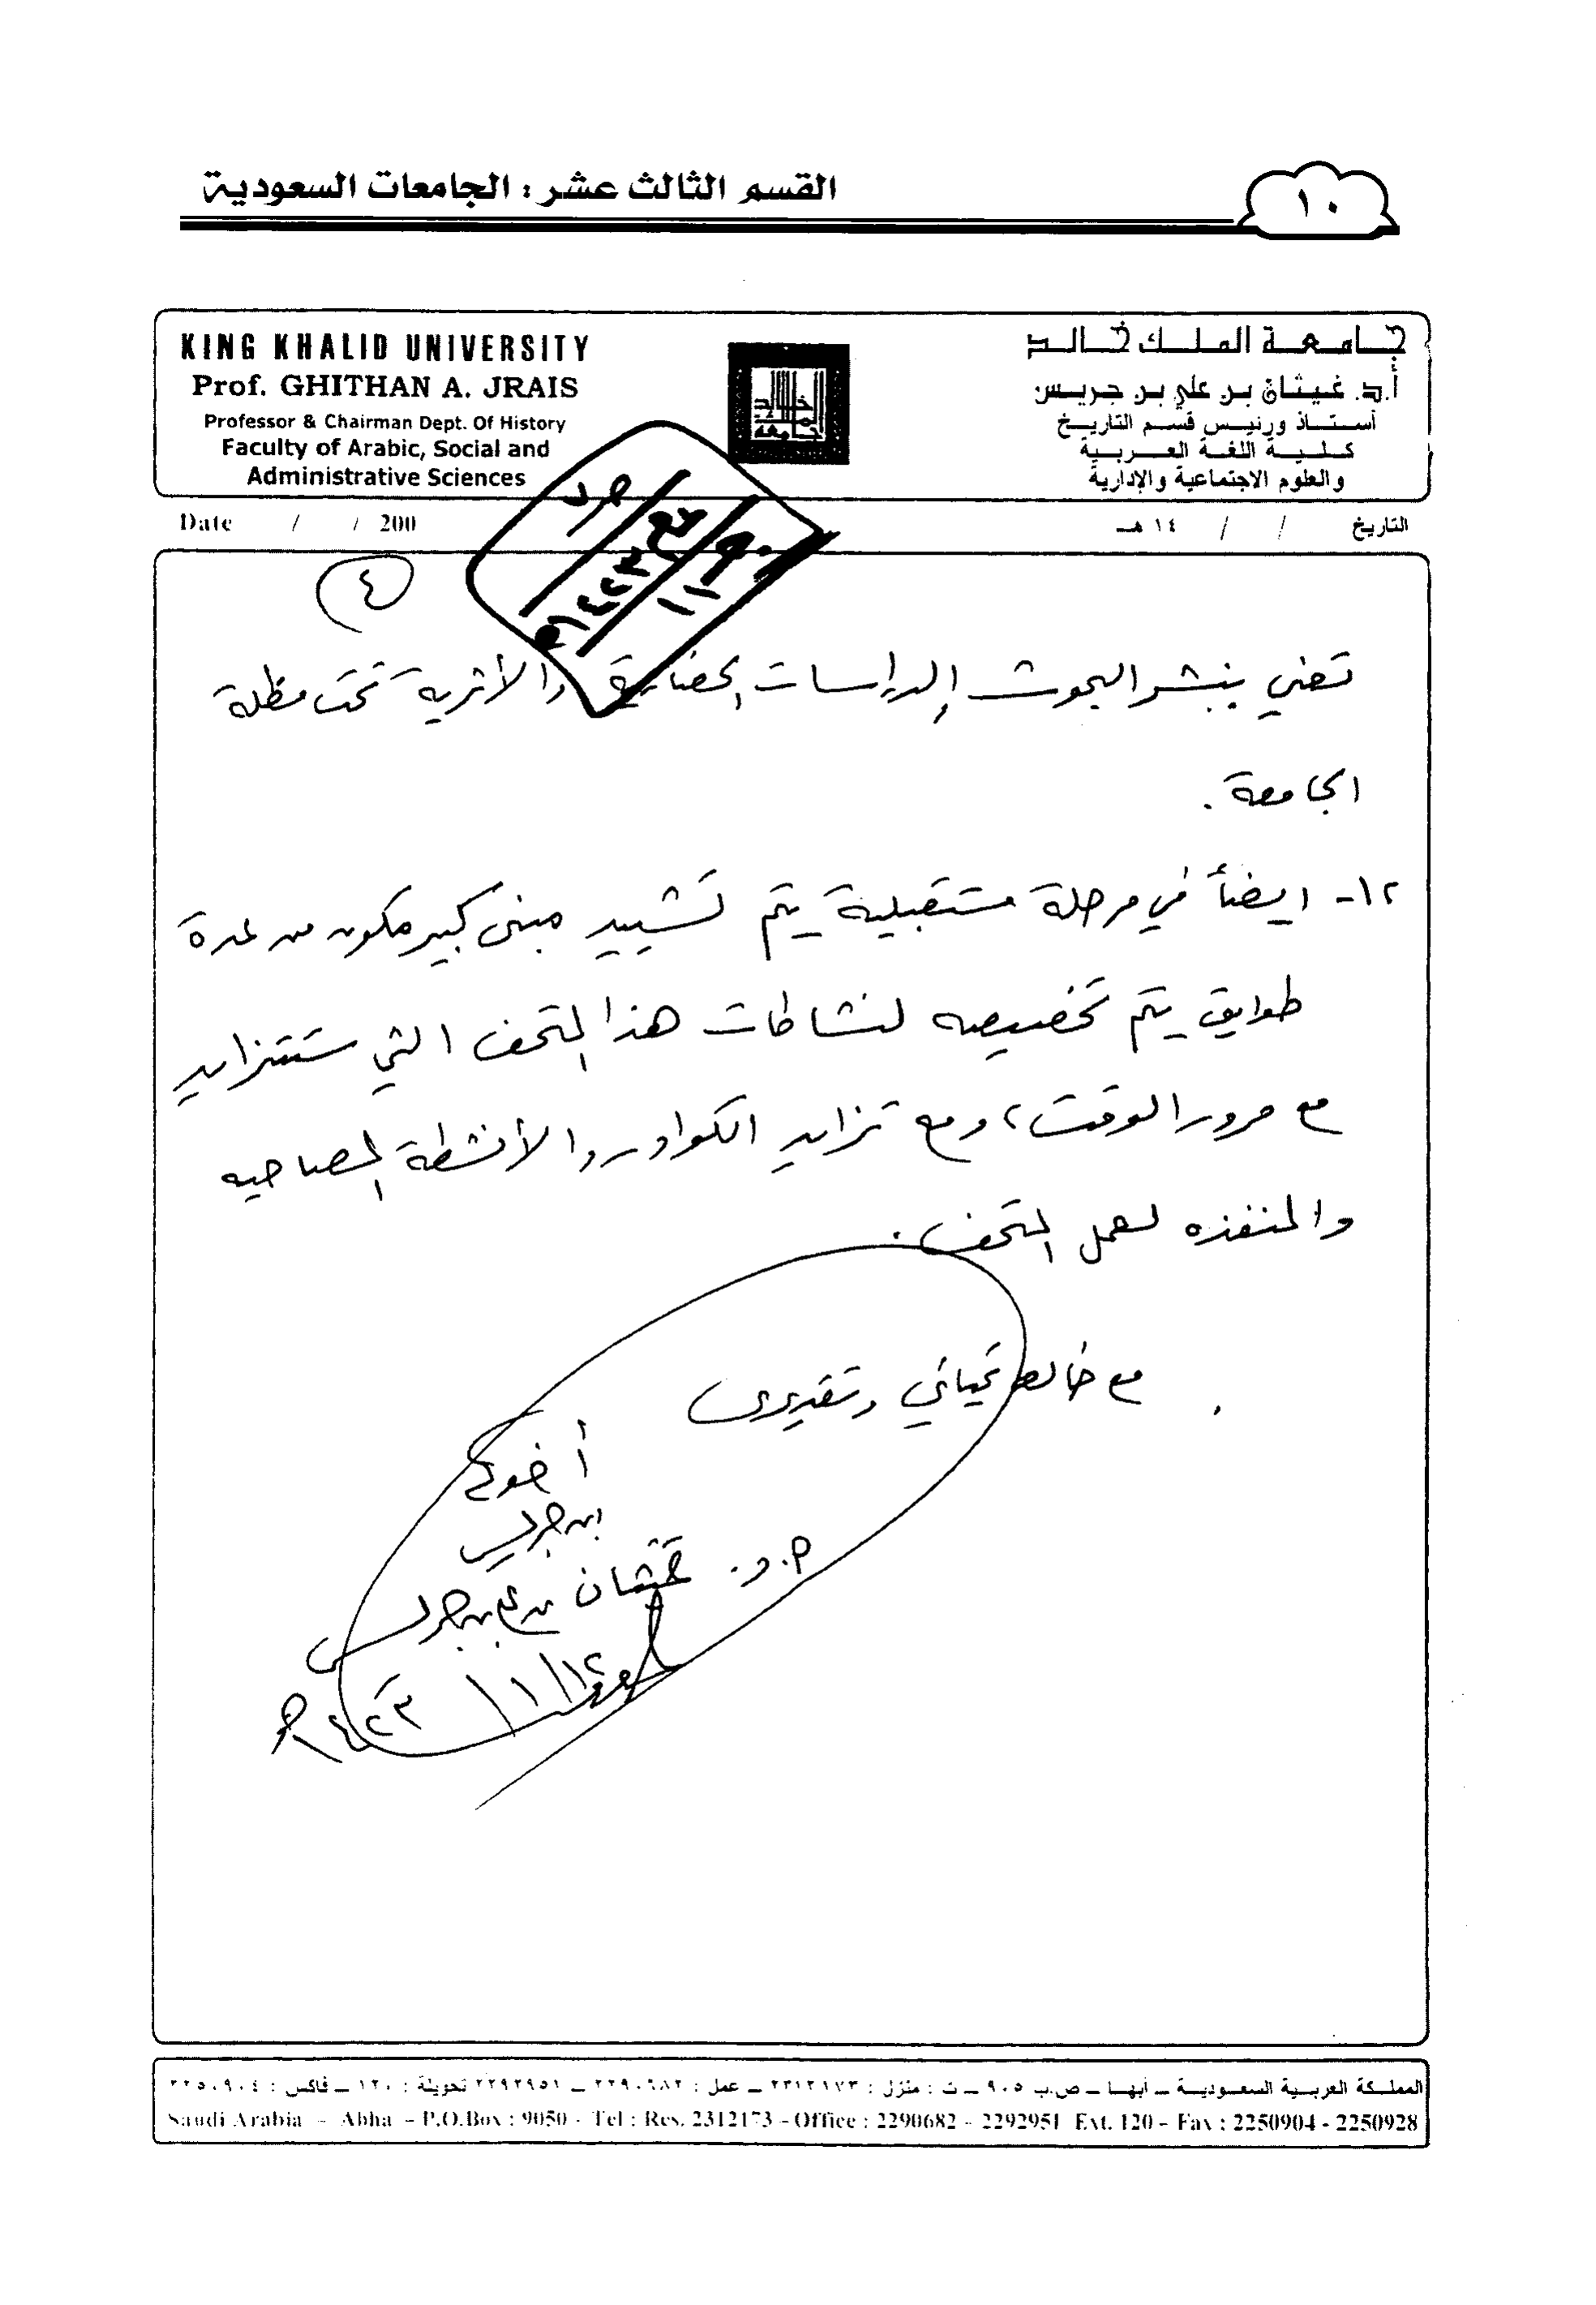 القسم الثالث عشر : الجامعات السعودية
١٠
KING KHALID UNIVERSITY
Prof. GHITHAN A. JRAIS
Professor & Chairman Dept. Of History
Faculty of Arabic, Social and
Administrative Sciences
جامعة الملك خالد
أ.د. غيثان بن علي بن جريس
أستاذ ورئيس قسم التاريخ
كلية اللغة العربية
والعلوم الاجتماعية والإدارية
Date / / 200
التاريخ / / ١٤ هـ
٤
تعنى بنشر البحوث والدراسات الحضارية والأثرية تحت مظلة
الجامعة .
١٢- ايضاً في مرحلة مستقبلية يتم تشييد مبنى كبير مكون من عدة
طوابق يتم تخصيصه لنشاطات هذا المتحف التي ستتزايد
مع مرور الوقت، ومع تزايد الكوادر والأنشطة المصاحبه
والمنفذه لعمل المتحف .
مع خالص تحياتي وتقديري
أخوكم
ابن جريس
أ.د. غيثان بن علي بن جريس
١٢/١/١٤٢٣هـ
المملكة العربية السعودية ــ أبها ــ ص.ب ٩٠٥ ــ ت : منزل : ٢٣١٢١٧٣ ــ عمل : ٢٢٩٠٦٨٢ ــ ٢٢٩٢٩٥١ تحويلة : ١٢٠ ــ فاكس : ٢٢٥٠٩٠٤
Saudi Arabia - Abha - P.O.Box : 9050 - Tel : Res. 2312173 - Office : 2290682 - 2292951 Ext. 120 - Fax : 2250904 - 2250928